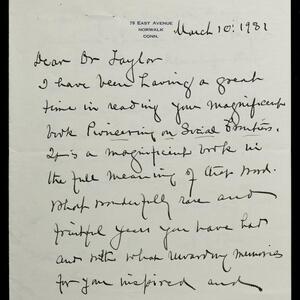 75 EAST AVENUE
NORWALK
CONN.
March 10: 1931
Dear Dr Taylor
I have been having a great
time in reading your magnificent
book Pioneering on Social Frontiers.
It is a magnificent book in
the full meaning of that word.
What wonderfully rare and
fruitful years you have had
and with what rewarding memories
for your inspired and